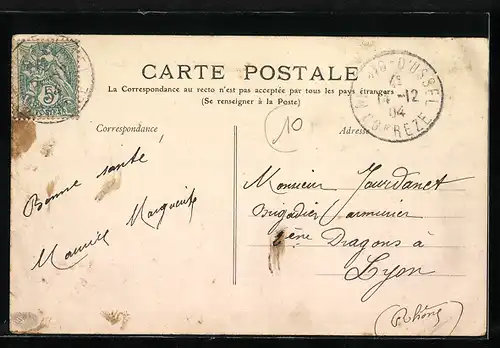 CARTE POSTALE
La Correspondance au recto n'est pas acceptée par tous les pays étrangers
(Se renseigner à la Poste)
Correspondance
Adresse
10
D'USSEL
14-12
04
CORREZE
5c
Bonne santé
Maurice
Monsieur Jourdanet
Brigadier armurier
Dragons à
Lyon
(Rhône)